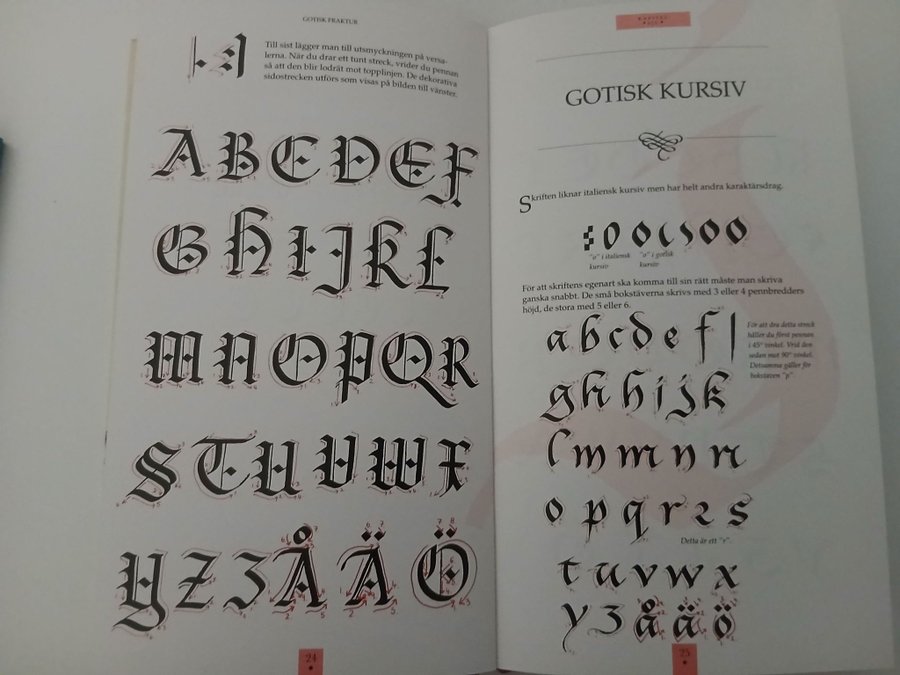 GOTISK FRAKTUR
Till sist lägger man till utsmyckningen på versa-
lerna. När du drar ett tunt streck, vrider du pennan
så att den blir lodrät mot topplinjen. De dekorativa
sidostrecken utförs som visas på bilden till vänster.
A B C D E F
G H I J K L
M N O P Q R
S T U V W X
Y Z Z Å Ä Ö
24
KAPITEL
GOTISK KURSIV
Skriften liknar italiensk kursiv men har helt andra karaktärsdrag.
"o" i italiensk
kursiv
"o" i gotisk
kursiv
För att skriftens egenart ska komma till sin rätt måste man skriva
ganska snabbt. De små bokstäverna skrivs med 3 eller 4 pennbredders
höjd, de stora med 5 eller 6.
a b c d e f
För att dra detta streck
håller du först pennan
i 45° vinkel. Vrid den
sedan mot 90° vinkel.
Detsamma gäller för
bokstaven "p".
g h h i j k
l m m n n
o p q r r s
Detta är ett "r".
t u v w x
y z å ä ö
25